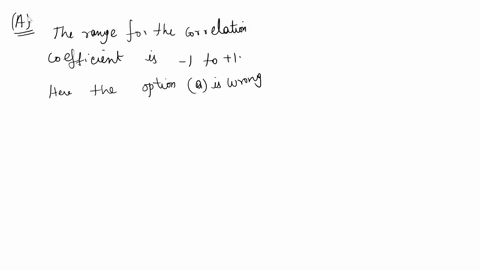 (A)
The range for the correlation
coefficient is -1 to +1.
Here the option (a) is wrong